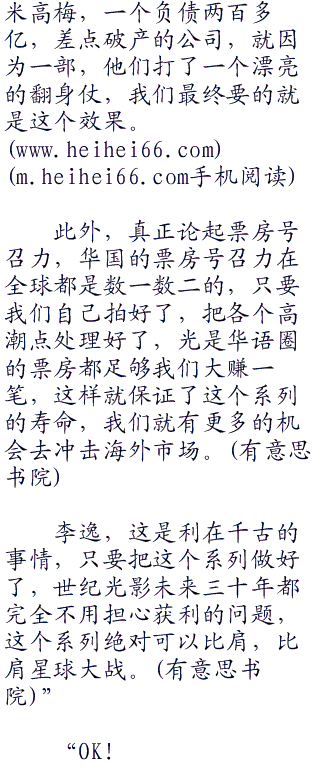 米高梅，一个负债两百多
亿，差点破产的公司，就因
为一部，他们打了一个漂亮
的翻身仗，我们最终要的就
是这个效果。
(www.heihei66.com)
(m.heihei66.com手机阅读)
此外，真正论起票房号
召力，华国的票房号召力在
全球都是数一数二的，只要
我们自己拍好了，把各个高
潮点处理好了，光是华语圈
的票房都足够我们大赚一
笔，这样就保证了这个系列
的寿命，我们就有更多的机
会去冲击海外市场。(有意思
书院)
李逸，这是利在千古的
事情，只要把这个系列做好
了，世纪光影未来三十年都
完全不用担心获利的问题，
这个系列绝对可以比肩，比
肩星球大战。(有意思书
院)”
“OK!